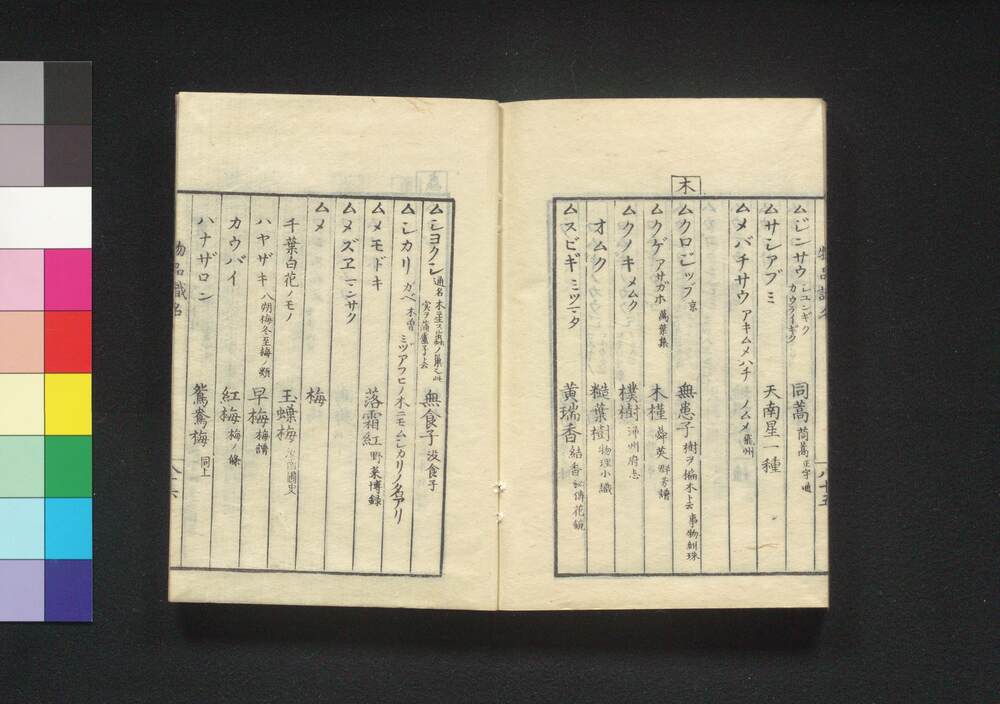 物品識名
ムジンサウ シユンギク カウライギク 同蒿 茼蒿 正字通
ムサシアブミ 天南星一種
ムメバチサウ アキムメハチ ノムメ 飛州
木
ムクロジ 京 無患子 樹ヲ 木ト云 事物紺珠
ムクゲ アサガホ 萬葉集 木槿 蕣英 群芳譜
ムクノキ メムク 樸樹 漳州府志
オムク 糙葉樹 物理小識
ムスビギ ミツマタ 黄瑞香 結香 秘傳花鏡
八十五
ムシヨクシ 通名 木 無食子 没食子
ムシカリ ガベ 木曽 ミヅアフヒノ木ニモムシカリノ名アリ
ムメモドキ 落霜紅 野菜博録
ムメズヱ マンサク
ムメ 梅
千葉白花ノモノ 玉蝶梅
ハヤザキ 八朔梅冬至梅ノ類 早梅 梅譜
カウバイ 紅梅 梅ノ條
ハナザロン 鴛鴦梅 同上
物品識名
八十六